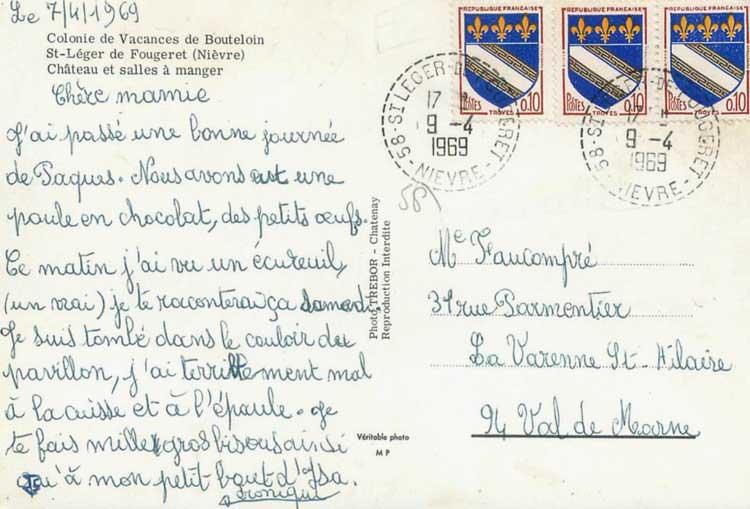 Le 7/4/1969
Colonie de Vacances de Bouteloin
St-Léger de Fougeret (Nièvre)
Château et salles à manger
Chère mamie
J'ai passé une bonne journée
de Paques. Nous avons eut une
poule en chocolat, des petits œufs.
Ce matin j'ai vu un écureuil,
(un vrai) je te raconterai ça samedi.
Je suis tombé dans le couloir du
pavillon, j'ai terriblement mal
à la cuisse et à l'épaule. Je
te fais mille gros bisous ainsi
qu'à mon petit bout d'Isa.
Photo TREBOR - Chatenay
Reproduction Interdite
Véritable photo
M P
REPUBLIQUE FRANÇAISE
POSTES 0,10
TROYES
REPUBLIQUE FRANÇAISE
POSTES 0,10
TROYES
REPUBLIQUE FRANÇAISE
POSTES 0,10
TROYES
58 - ST LEGER-DE-FOUGERET
9 - 4
1969
NIEVRE
58 - ST LEGER-DE-FOUGERET
9 - 4
1969
NIEVRE
Me Faucompré
31 rue Parmentier
La Varenne St-Hilaire
94 Val de Marne